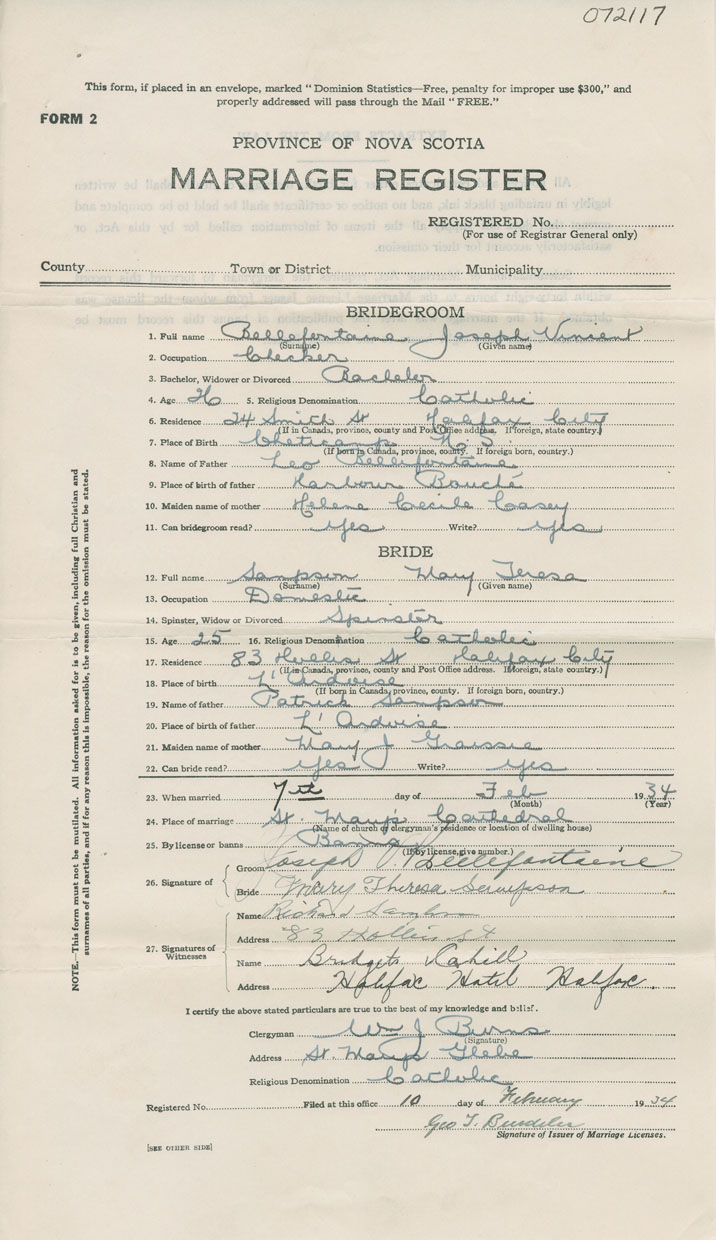 072117
This form, if placed in an envelope, marked "Dominion Statistics—Free, penalty for improper use $300," and
properly addressed will pass through the Mail "FREE."
FORM 2
PROVINCE OF NOVA SCOTIA
MARRIAGE REGISTER
REGISTERED No.
(For use of Registrar General only)
County Town or District Municipality
BRIDEGROOM
1. Full name Bellefontaine Joseph Vincent
(Surname) (Given name)
2. Occupation Checker
3. Bachelor, Widower or Divorced Bachelor
4. Age 26 5. Religious Denomination Catholic
6. Residence 24 Smith St Halifax City
(If in Canada, province, county and Post Office address. If foreign, state country.)
7. Place of Birth Cheticamp N. S
(If born in Canada, province, county. If foreign born, country.)
8. Name of Father Leo Bellefontaine
9. Place of birth of father Harbour Bouché
10. Maiden name of mother Helene Cecile Casey
11. Can bridegroom read? yes Write? yes
BRIDE
12. Full name Sampson Mary Teresa
(Surname) (Given name)
13. Occupation Domestic
14. Spinster, Widow or Divorced Spinster
15. Age 25 16. Religious Denomination Catholic
17. Residence 83 Hollis St Halifax City
(If in Canada, province, county and Post Office address. If foreign, state country.)
18. Place of birth L'Ardoise
(If born in Canada, province, county. If foreign born, country.)
19. Name of father Patrick Sampson
20. Place of birth of father L'Ardoise
21. Maiden name of mother Mary J
22. Can bride read? yes Write? yes
23. When married 7th day of Feb 1934
(Month) (Year)
24. Place of marriage St. Mary's Cathedral
(Name of church or clergyman's residence or location of dwelling house)
25. By license or banns Banns
(If by license, give number.)
26. Signature of
Groom Joseph V. Bellefontaine
Bride Mary Theresa Sampson
27. Signatures of Witnesses
Name Richard
Address 83 Hollis St
Name Bridget Cahill
Address Halifax Hotel Halifax.
I certify the above stated particulars are true to the best of my knowledge and belief.
Clergyman Wm J Burns
(Signature)
Address St. Mary's Glebe
Religious Denomination Catholic
Registered No. Filed at this office 10 day of February 1934
Geo T.
Signature of Issuer of Marriage Licenses.
[SEE OTHER SIDE]
NOTE.—This form must not be mutilated. All information asked for is to be given, including full Christian and
surnames of all parties, and if for any reason this is impossible, the reason for the omission must be stated.